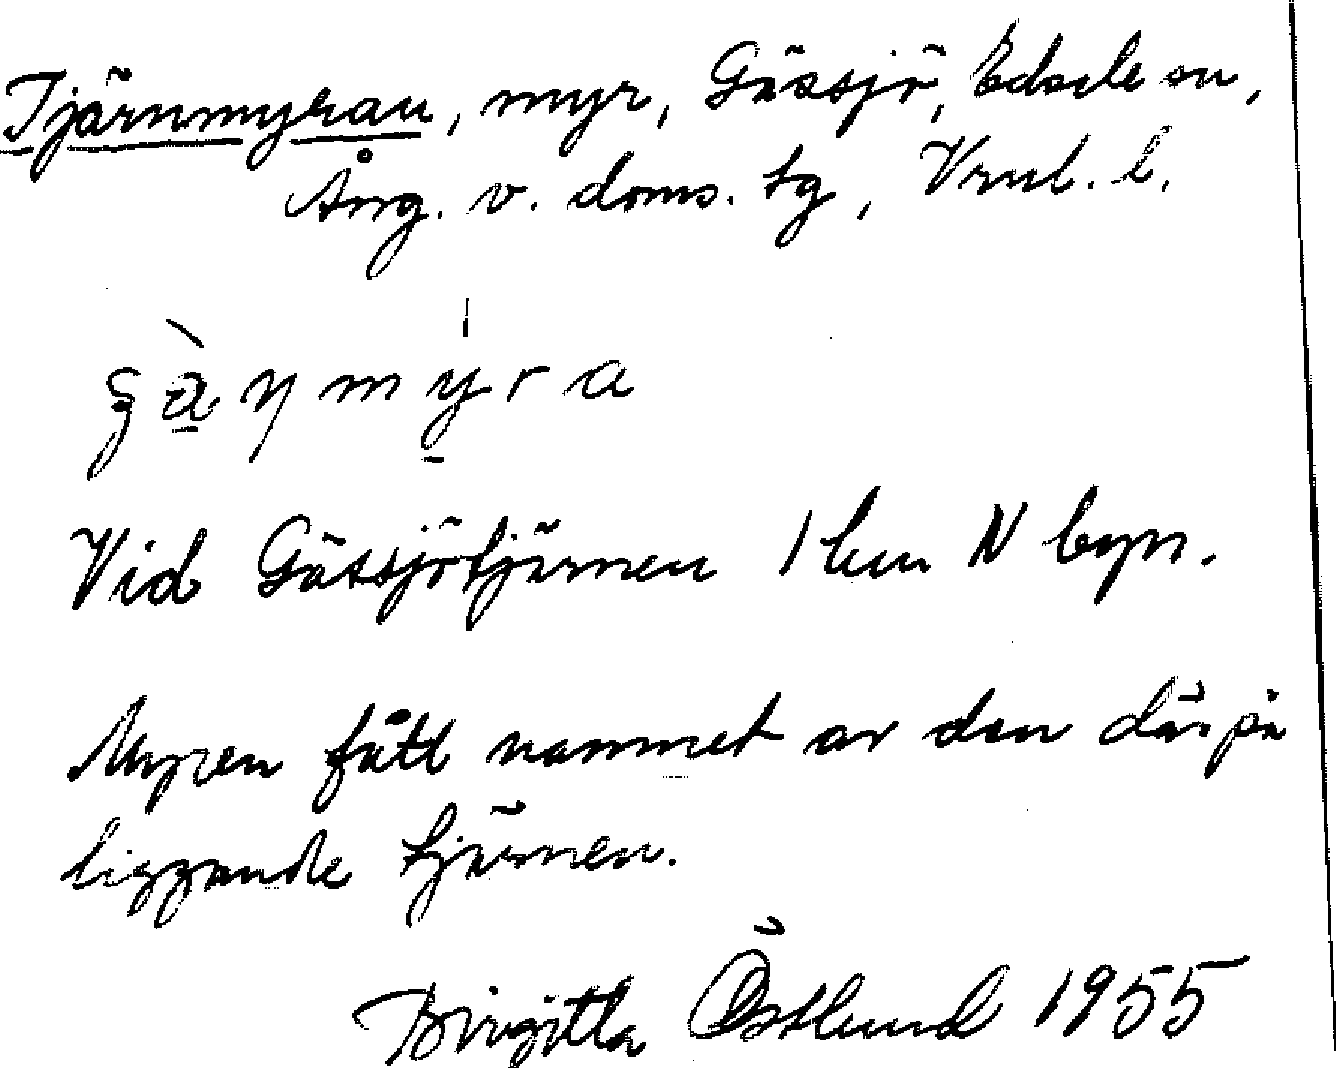 Tjärnmyran, myr, Gässjö, Edsele sn,
Ång. v. doms. tg, Vrnl. l.
Vid Gässjötjärnen 1 km N byn.
Myren fått namnet av den därpå
liggande tjärnen.
Birgitta Östlund 1955